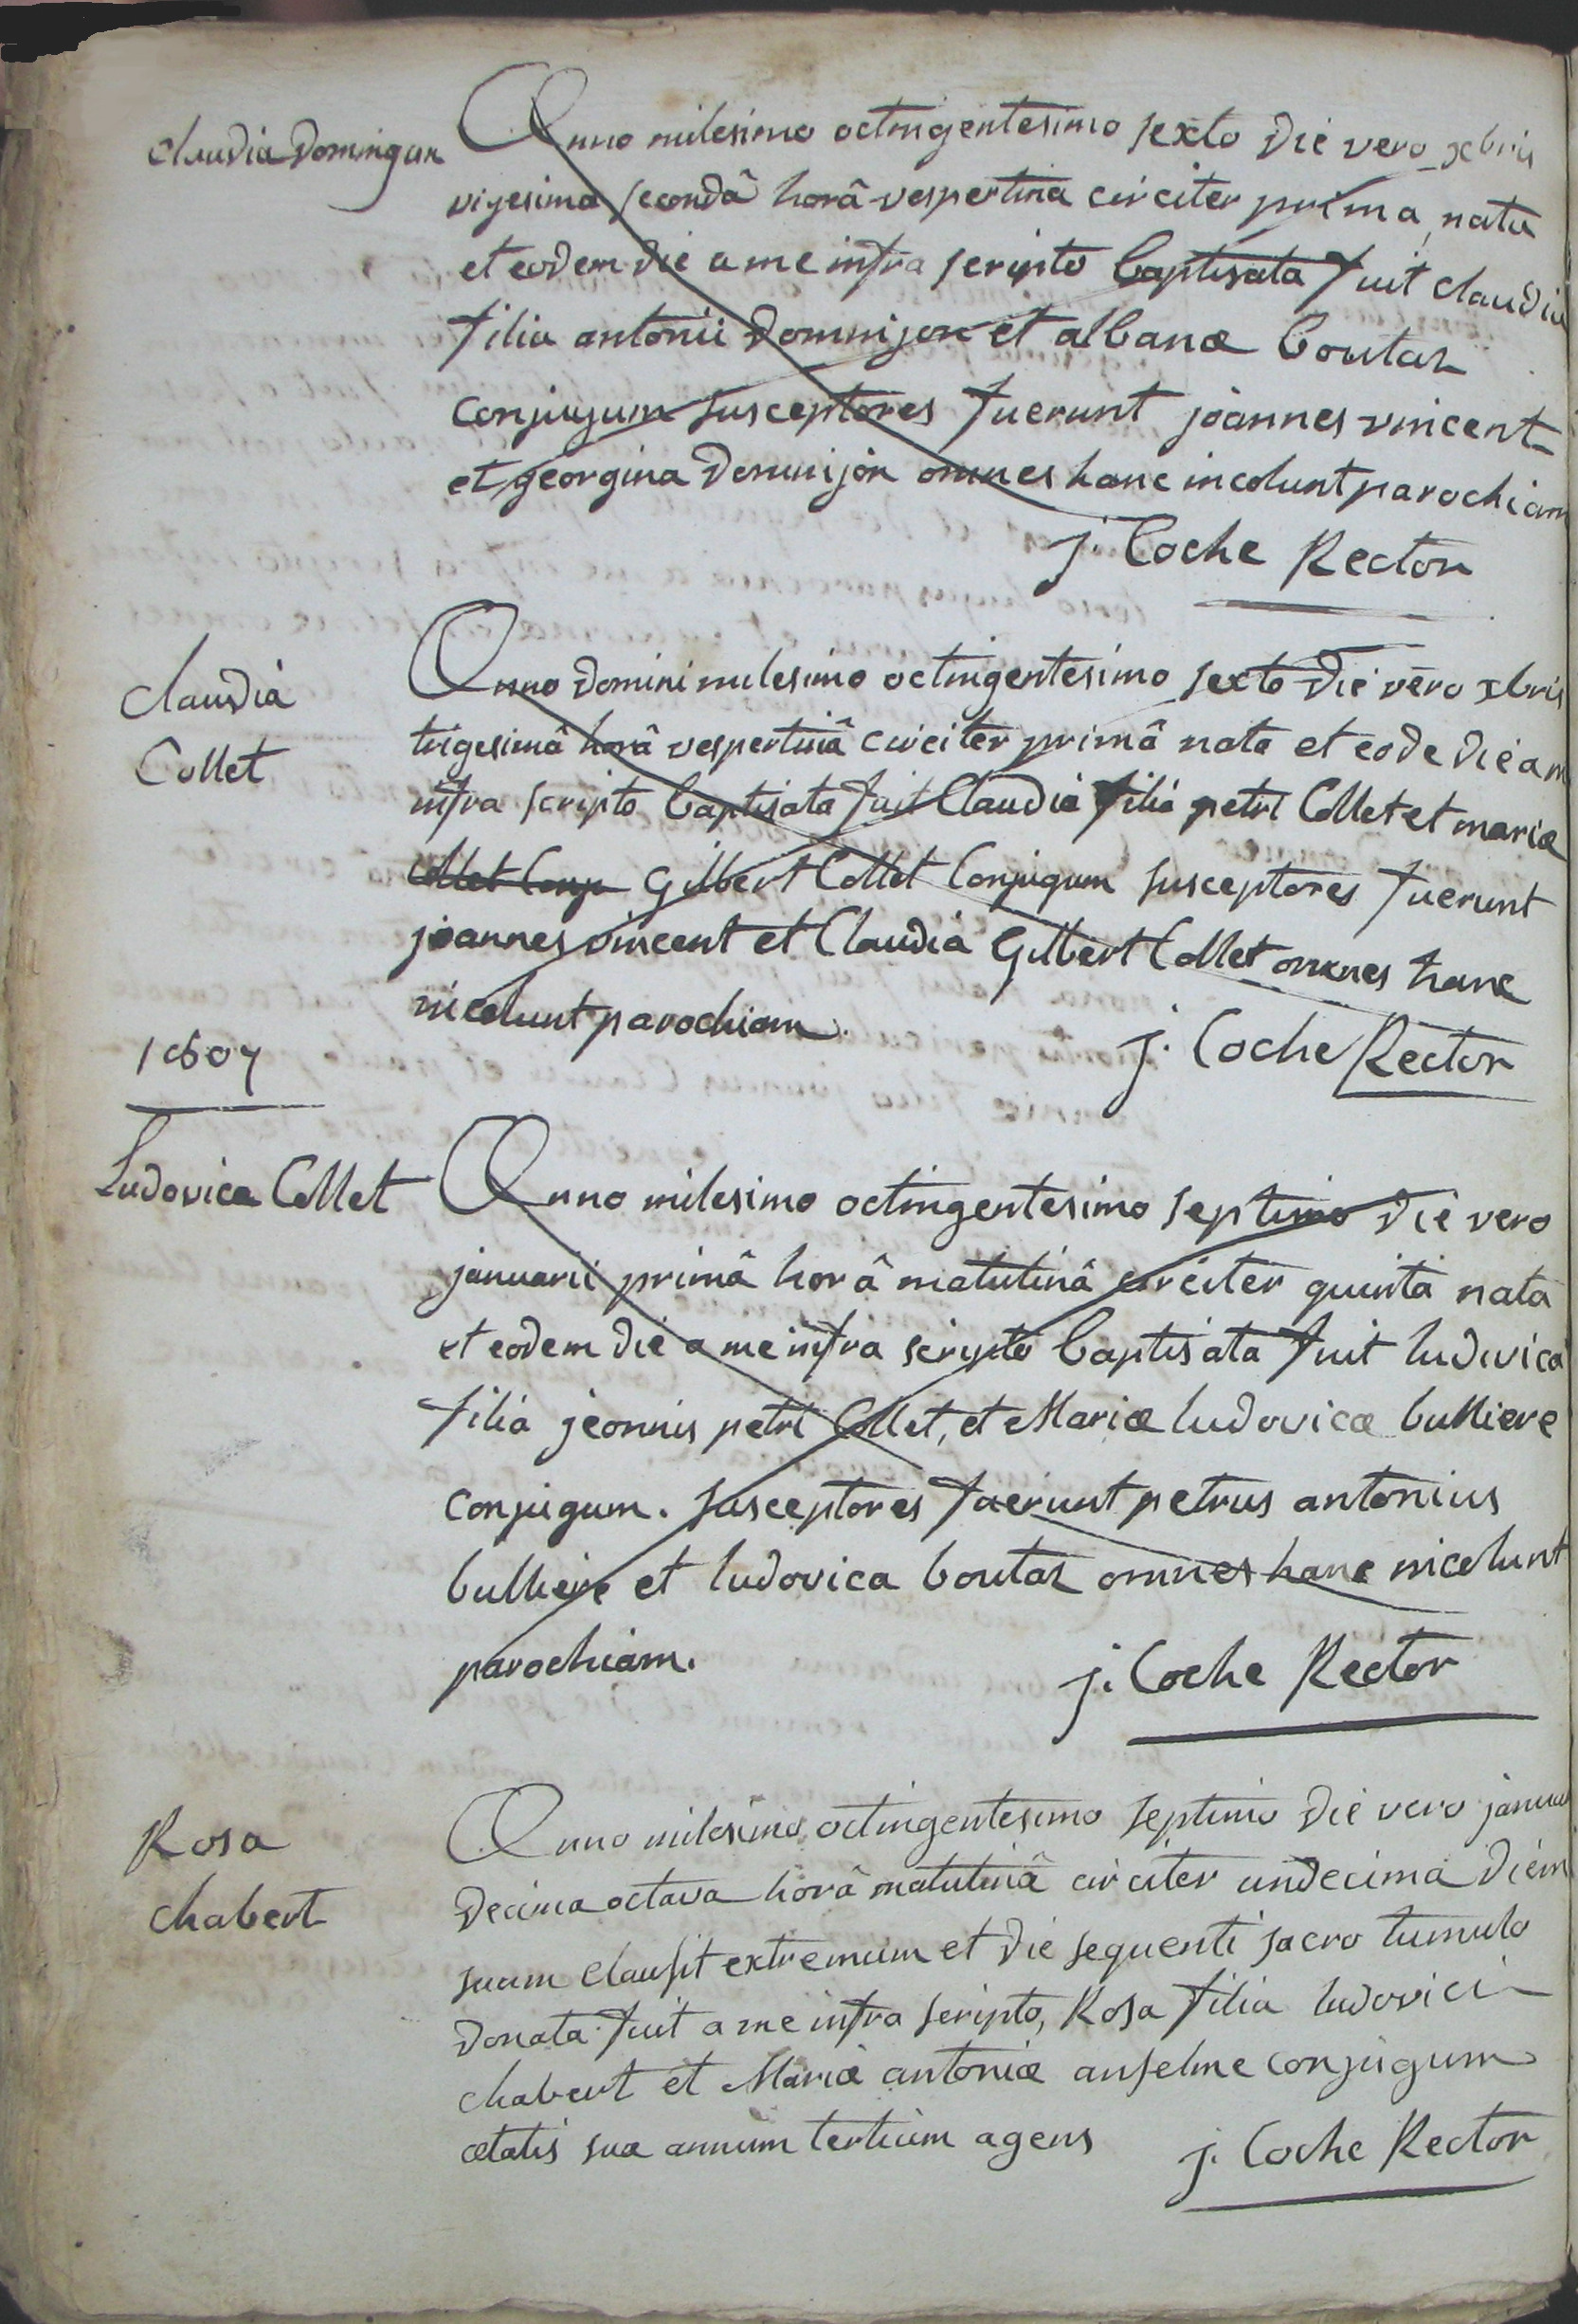 Claudia Domingon
Anno milesimo octingentesimo sexto die vero xbris
vigesima secondâ horâ vespertina circiter prima, nata
et eodem die a me infra scripto baptisata fuit claudia
filia antonii Domnijon et albanæ boutaz
conjugum susceptores fuerunt joannes vincent
et georgina Domnijon omnes hanc incolunt parochiam
j. Coche Rector
Claudia
Collet
Anno Domini milesimo octingentesimo sexto die vero xbris
trigesimâ horâ vespertinâ circiter primâ nata et eode die a m
infra scripto baptisata fuit Claudia filia petri Collet et mariæ
Collet Conju Gilbert Collet Conjugum susceptores fuerunt
joannes vincent et Claudia Gilbert Collet omnes hanc
incolunt parochiam.
j. Coche Rector
1807
Ludovica Collet
Anno milesimo octingentesimo septimo die vero
januarii primâ horâ matutinâ circiter quinta nata
et eodem die a me infra scripto baptisata fuit ludovica
filia jeonnis petri Collet, et Mariæ ludovicæ bulliere
conjugum. susceptores fuerunt petrus antonius
bulliere et ludovica boutaz omnes hanc incolunt
parochiam.
j. Coche Rector
Rosa
Chabert
Anno milesimo octingentesimo septimo die vero januar
decima octava horâ matutinâ circiter undecima diem
suum clausit extremum et die sequenti sacro tumulo
donata fuit a me infra scripto, Rosa filia ludovici
chabert et Mariæ antoniæ anselme conjugum
ætatis suæ annum tertium agens
j. Coche Rector